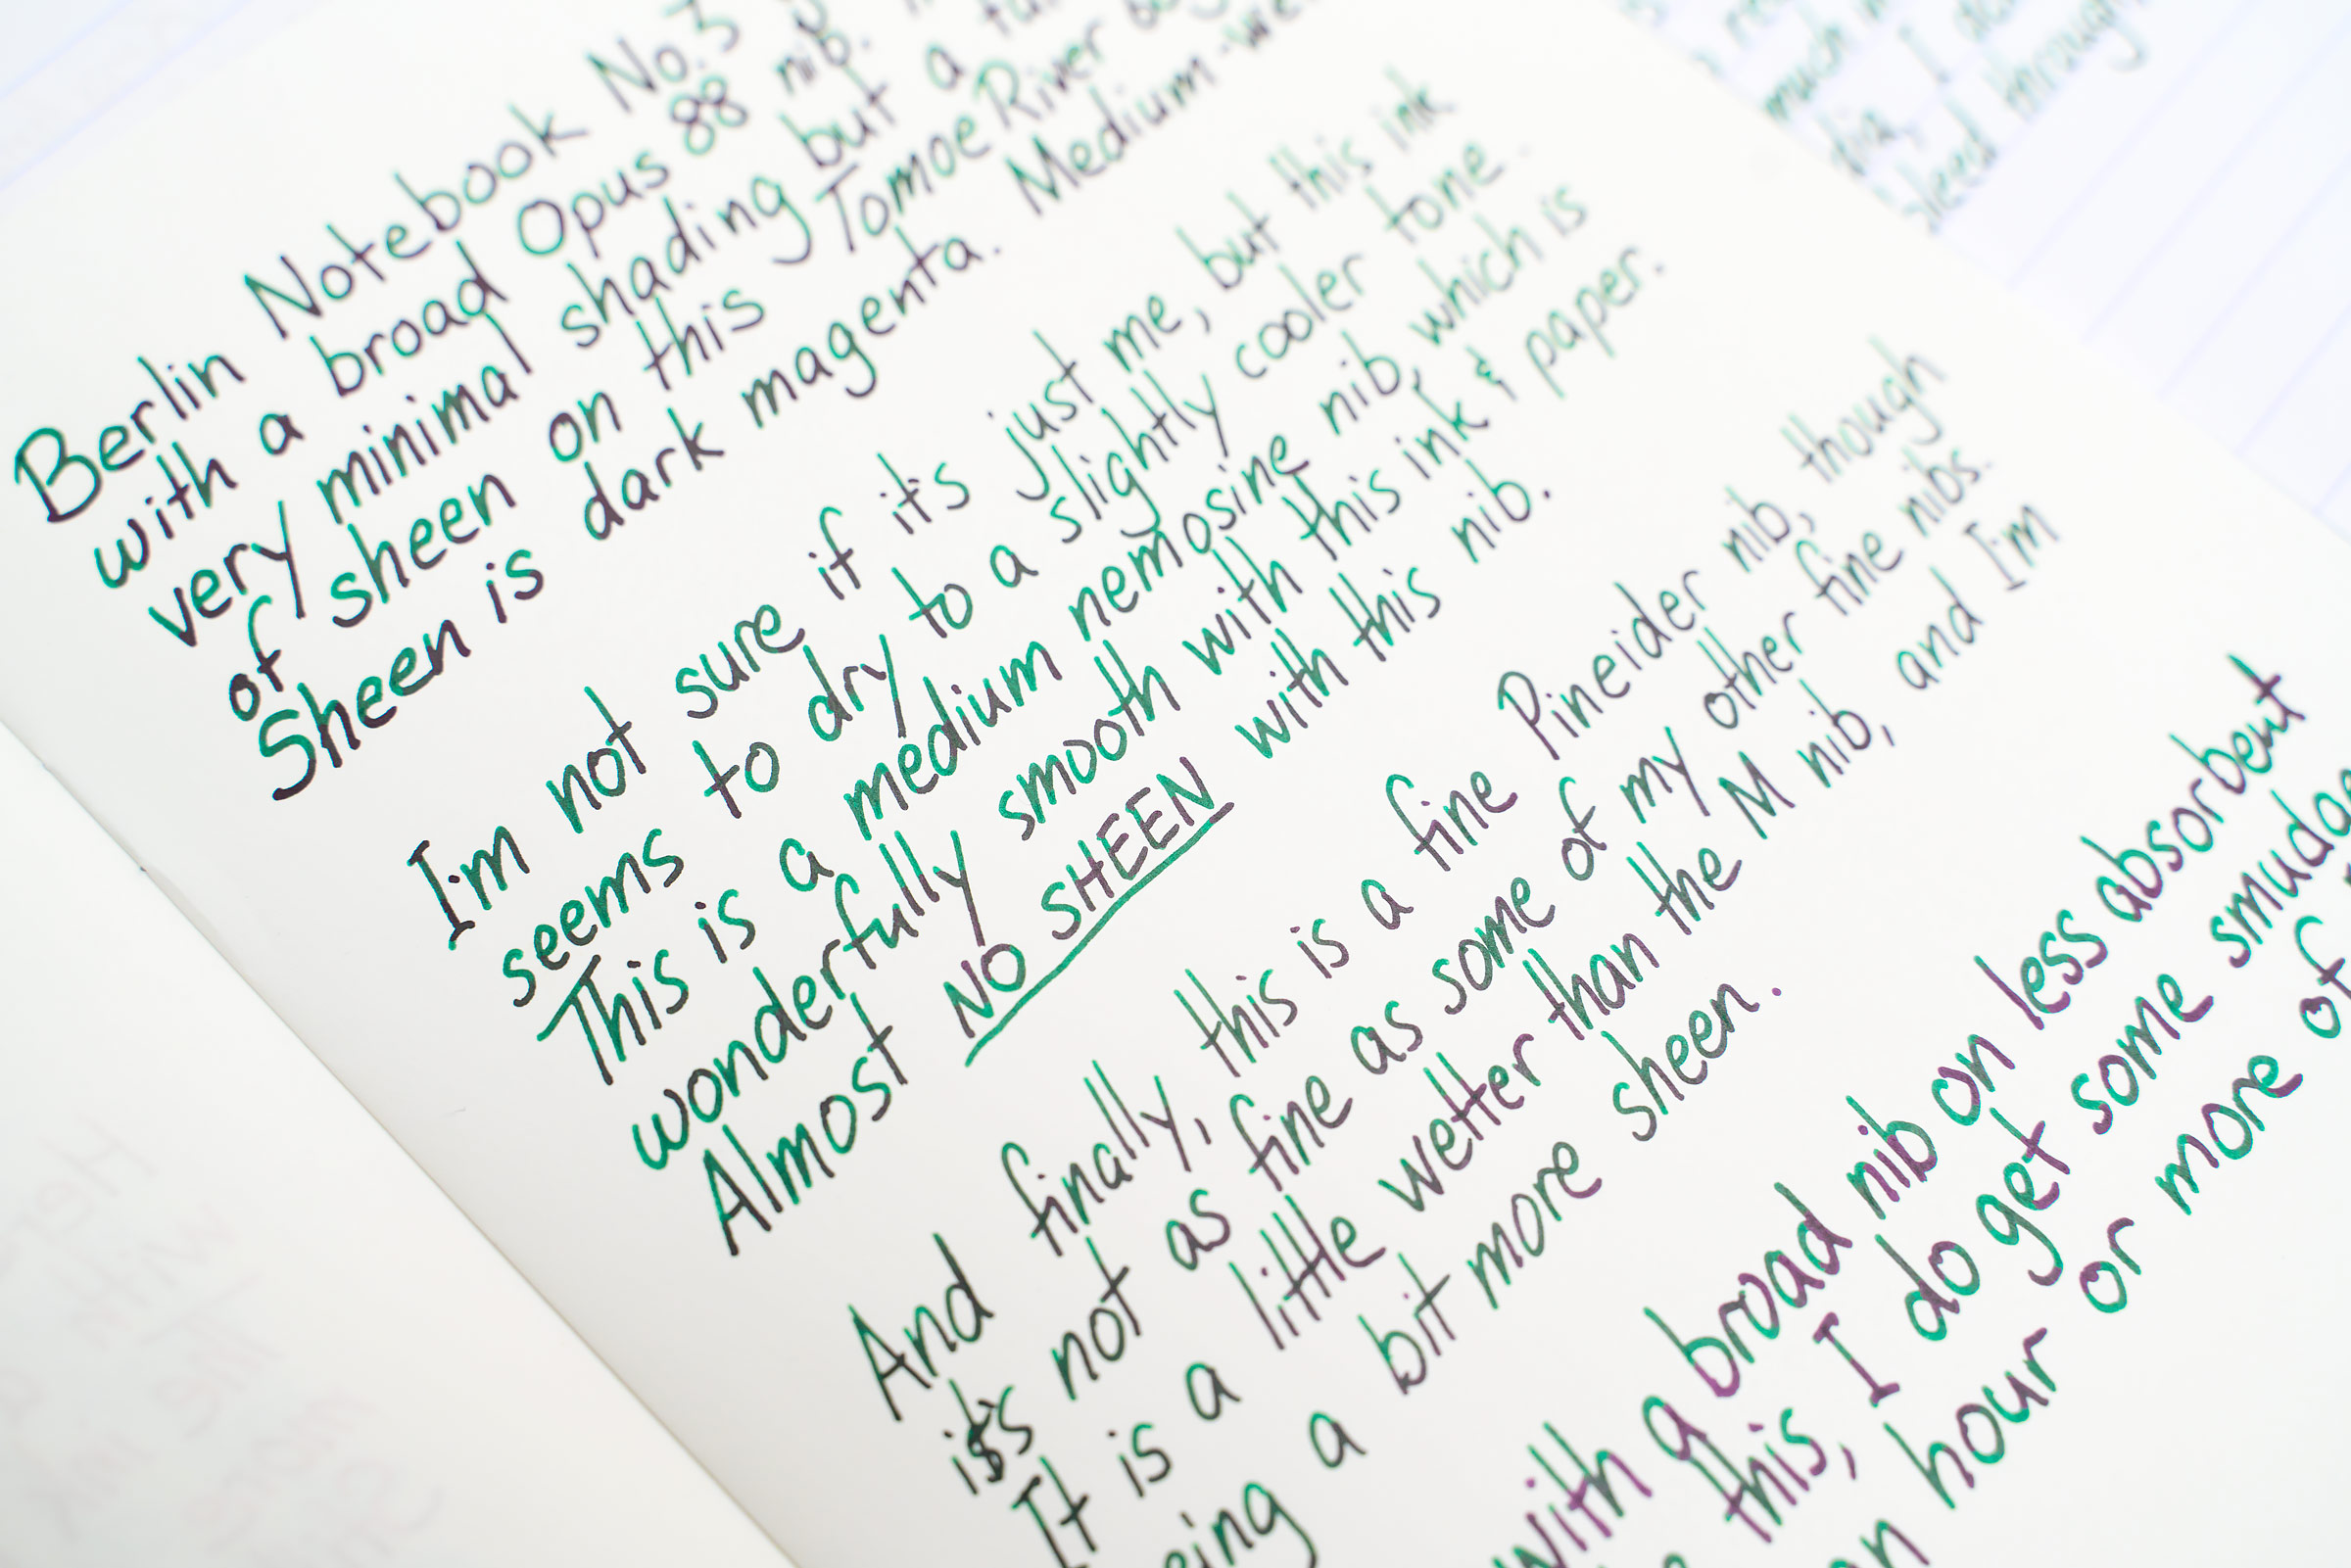 Berlin Notebook No.3
with a broad Opus 88 nib.
very minimal shading but a
of sheen on this Tomoe River
Sheen is dark magenta. Medium-
I'm not sure if it's just me, but this ink
seems to dry to a slightly cooler tone.
This is a medium nemosine nib, which is
wonderfully smooth with this ink & paper.
Almost NO SHEEN with this nib.
And finally, this is a fine Pineider nib, though
it's not as fine as some of my other fine nibs.
It is a little wetter than the M nib, and I'm
a bit more sheen.
with a broad nib on less absorbent
this, I do get some
hour or more of
much
I
bleed through